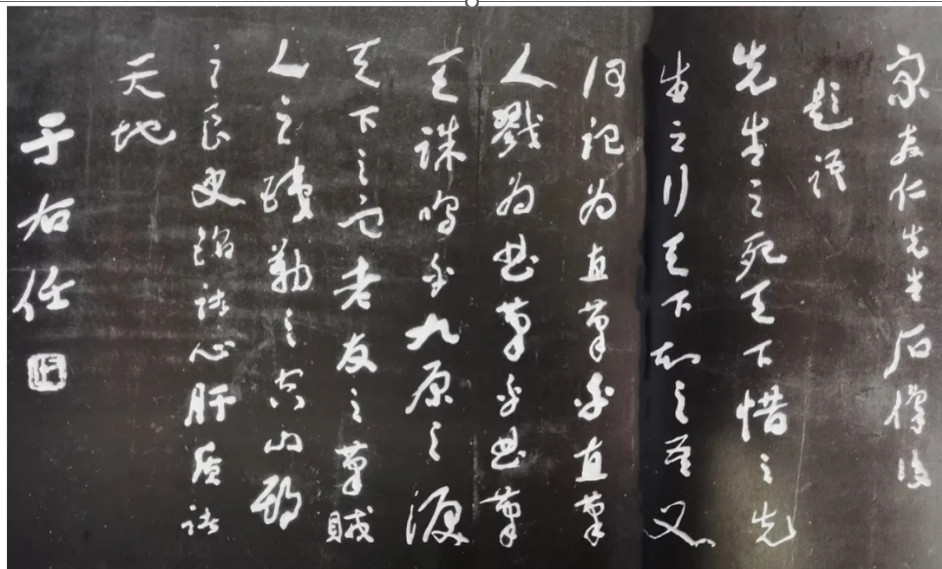 宋教仁先生石像後
題語
先生之死天下惜之先
生之行天下知之吾又
何記为直筆乎直筆
人戮为曲筆乎曲筆
天誅嗚乎九原之淚
天下之血老友之筆賊
人之鐵勒之空山期
之良史銘諸心肝質諸
天地
于右任